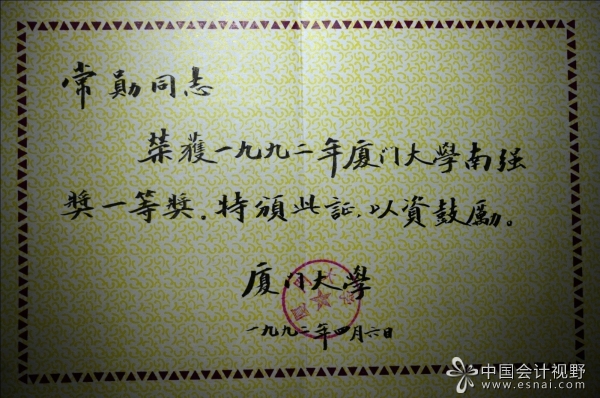 常勛同志
荣獲一九九二年厦门大學南强
奖一等奖．特頒此証，以資鼓励。
厦门大學
一九九二年四月六日
中国会计视野
www.esnai.com